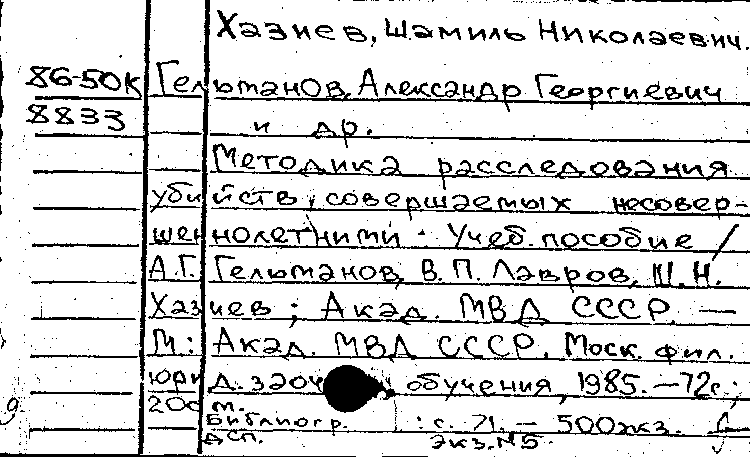 Хазиев, Шамиль Николаевич.
86-50К Гельманов, Александр Георгиевич
8833 и др.
Методика расследования
убийств, совершаемых несовер-
шеннолетними : Учеб. пособие /
А.Г. Гельманов, В.П. Лавров, Ш.Н.
Хазиев ; Акад. МВД СССР. —
М.: Акад. МВД СССР. Моск. фил.
юрид. заоч обучения, 1985. — 72с.;
20см.
Библиогр. : с. 71. — 500экз.
ДСП. Экз. №5.